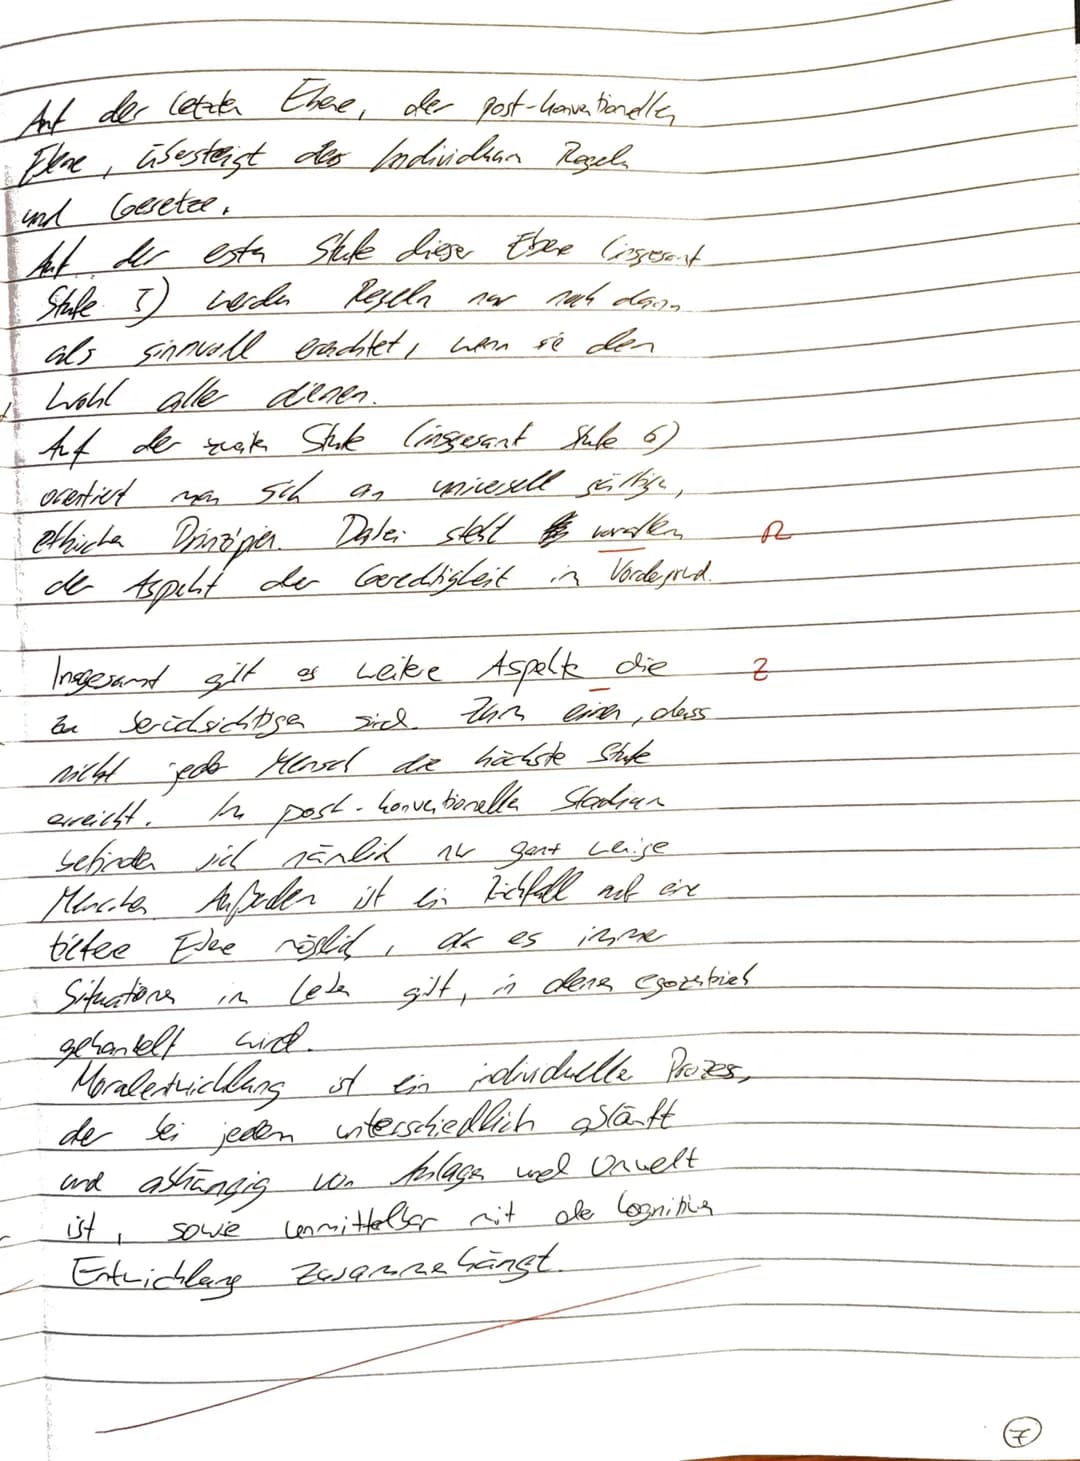 Auf der letzten Ebene, der post-konventionellen
Ebene, übersteigt das Individuum Regeln
und Gesetze.
Auf der ersten Stufe dieser Ebene (insgesamt
Stufe 5) werden Regeln nur noch dann
als sinnvoll erachtet, wenn sie dem
Wohl aller dienen.
Auf der zweiten Stufe (insgesamt Stufe 6)
orientiert man sich an universell gültigen,
ethischen Prinzipien. Dabei steht vorallem R
der Aspekt der Gerechtigkeit im Vordergrund.
Insgesamt gilt es weitere Aspekte die Z
zu berücksichtigen sind. Zum einen, dass
nicht jeder Mensch die höchste Stufe
erreicht. Im post-konventionellen Stadium
befinden sich nämlich nur ganz wenige
Menschen. Außerdem ist ein Rückfall auf eine
tiefere Ebene möglich, da es immer
Situationen im Leben gibt, in denen egozentrisch
gehandelt wird.
Moralentwicklung ist ein individueller Prozess,
der bei jedem unterschiedlich abläuft
und abhängig von Anlage und Umwelt
ist, sowie unmittelbar mit der kognitiven
Entwicklung zusammenhängt.
7